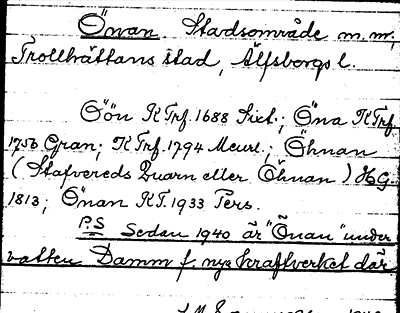 Önan. Stadsområde m.m.,
Trollhättans stad, Älfsborgs l.
Öön KTrf. 1688 Sixt.; Öna KTrf.
1750 Gran; KTrf. 1794 Meurl.; Öhnan
(Stafvereds Qvarn eller Öhnan) HG.
1813; Önan KT. 1933 Pers.
P.S Sedan 1940 är "Önan" under
vatten Damm f. nya kraftverket där